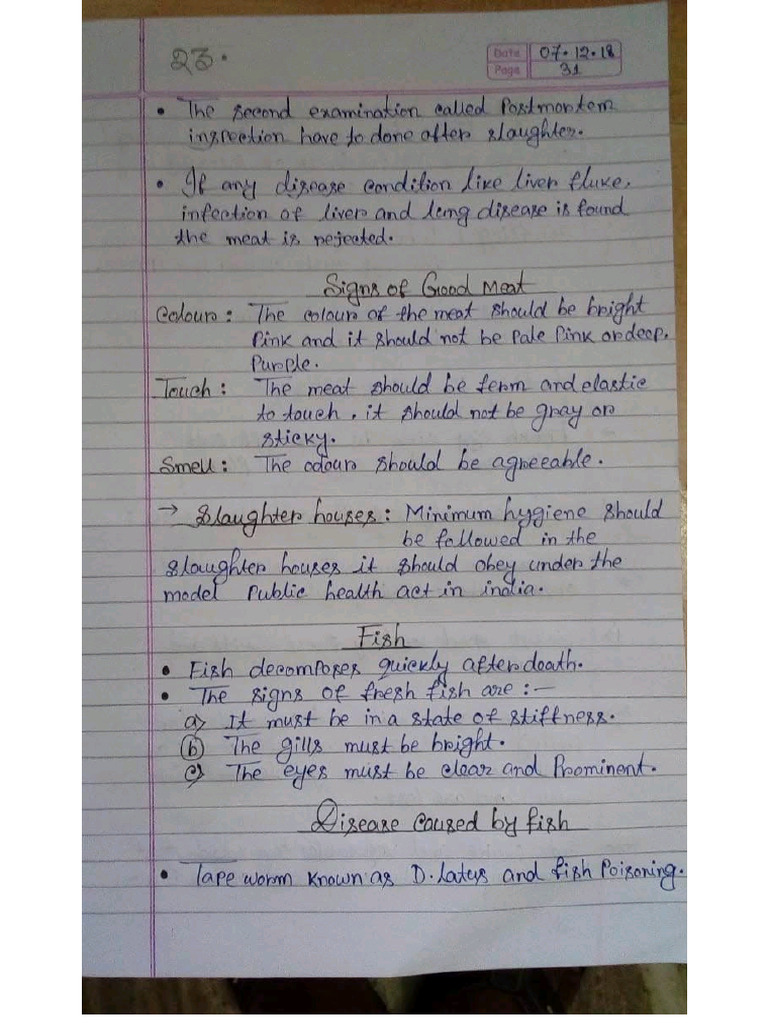 23.
Date 07.12.18
Page 31
• The second examination called Postmortem
inspection have to done after slaughter.
• If any disease condition like liver fluke,
infection of liver and lung disease is found
the meat is rejected.
Signs of Good Meat
Colour: The colour of the meat should be bright
Pink and it should not be Pale Pink or deep.
Purple.
Touch: The meat should be ferm and elastic
to touch, it should not be gray or
sticky.
Smell: The odour should be agreeable.
→ Slaughter houses: Minimum hygiene should
be followed in the
slaughter houses it should obey under the
model Public health act in india.
Fish
• Fish decomposes quickly after death.
• The signs of fresh fish are :-
a) It must be in a state of stiffness.
(b) The gills must be bright.
c) The eyes must be clear and Prominent.
Disease caused by fish
• Tape worm known as D. Latus and fish Poisoning.